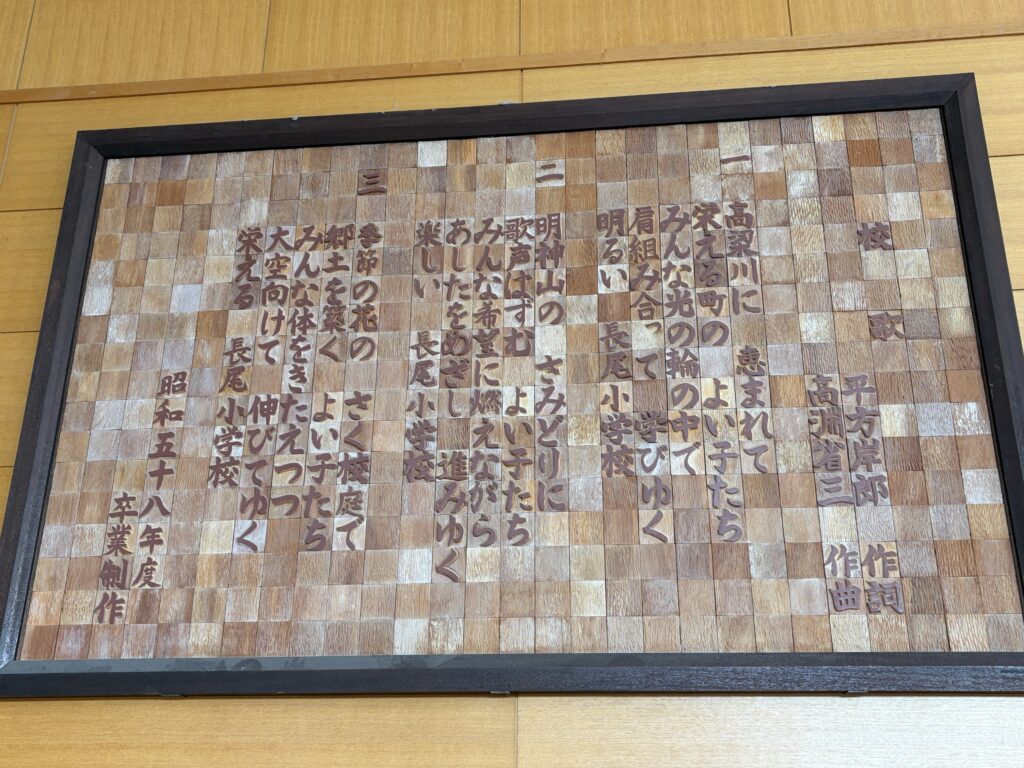 校歌
平方岸郎 作詞
高淵省三 作曲
一
高梁川に 恵まれて
栄える町の よい子たち
みんな光の輪の中で
肩組み合って 学びゆく
明るい 長尾小学校
二
明神山の さみどりに
歌声はずむ よい子たち
みんな希望に燃えながら
あしたをめざし 進みゆく
楽しい 長尾小学校
三
季節の花の さく校庭で
郷土を築く よい子たち
みんな体をきたえつつ
大空向けて 伸びてゆく
栄える 長尾小学校
昭和五十八年度
卒業制作